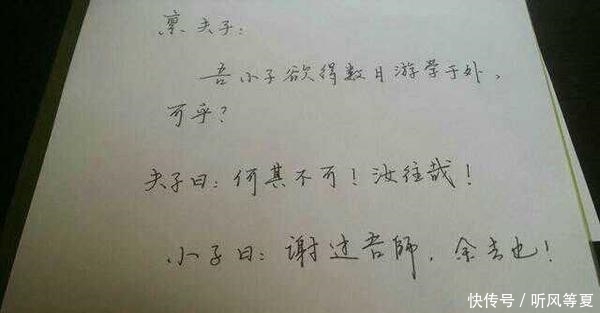 禀夫子:
吾小子欲得数月游学于外,
可乎?
夫子曰:何其不可!汝往哉!
小子曰:谢过吾師,余去也!
快传号/听风等夏